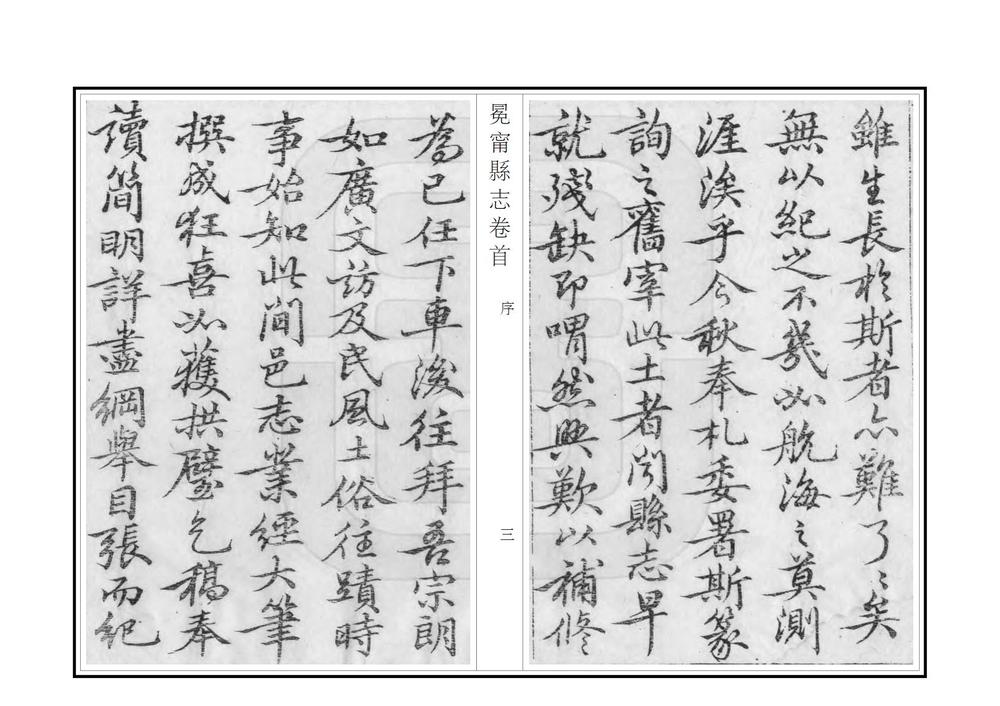 雖生長於斯者亦難了〻矣
無以紀之不幾如航海之莫測
涯涘乎今秋奉札委署斯篆
詢之舊宰此土者閱縣志早
就殘缺即喟然興歎以補修
冕甯縣志卷首
序
三
為己任下車後往拜吾宗朗
如廣文訪及民風土俗往蹟時
事始知此間邑志業經大筆
撰成狂喜如獲拱璧乞稿奉
讀簡明詳盡綱舉目張而紀